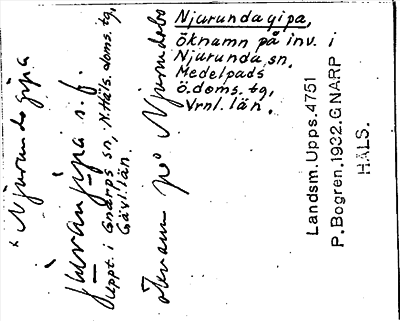 Njurundagipa
jurangipa s.f.
Uppt. i Gnarps sn, N.Häls. doms. tg,
Gävl. län.
öknamn på Njurundabo
Njurundagipa,
öknamn på inv. i
Njurunda sn,
Medelpads
ö.doms. tg,
Vrnl. län.
Landsm.Upps.4751
P.Bogren.1932.GNARP
HÄLS.